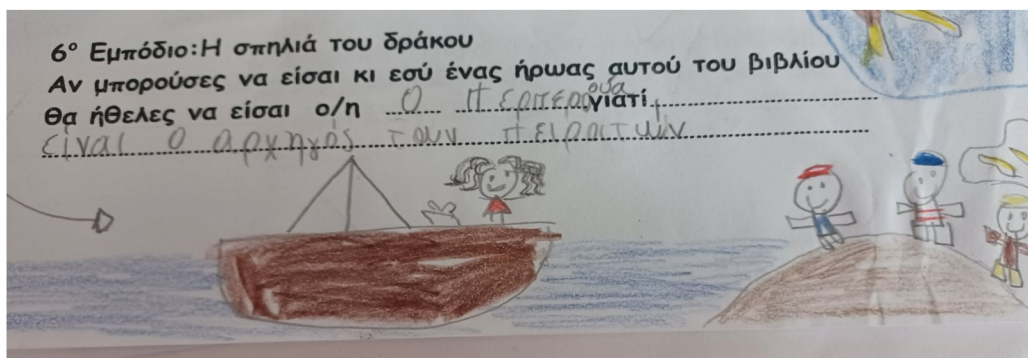 6° Εμπόδιο: Η σπηλιά του δράκου
Αν μπορούσες να είσαι κι εσύ ένας ήρωας αυτού του βιβλίου
θα ήθελες να είσαι ο/η ..... Ο Περπερούα γιατί
είναι ο αρχηγός των πειρατών